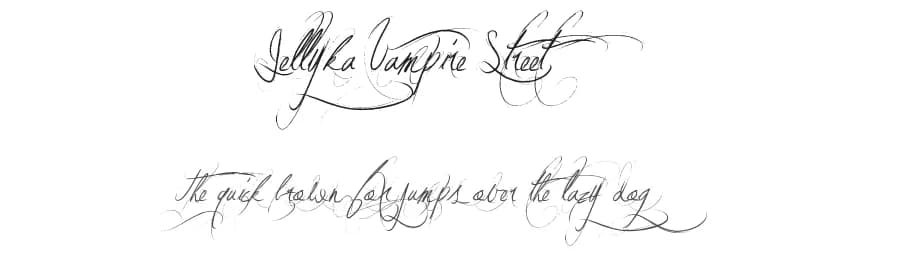 Jellyka Vampire Street
the quick brown fox jumps over the lazy dog